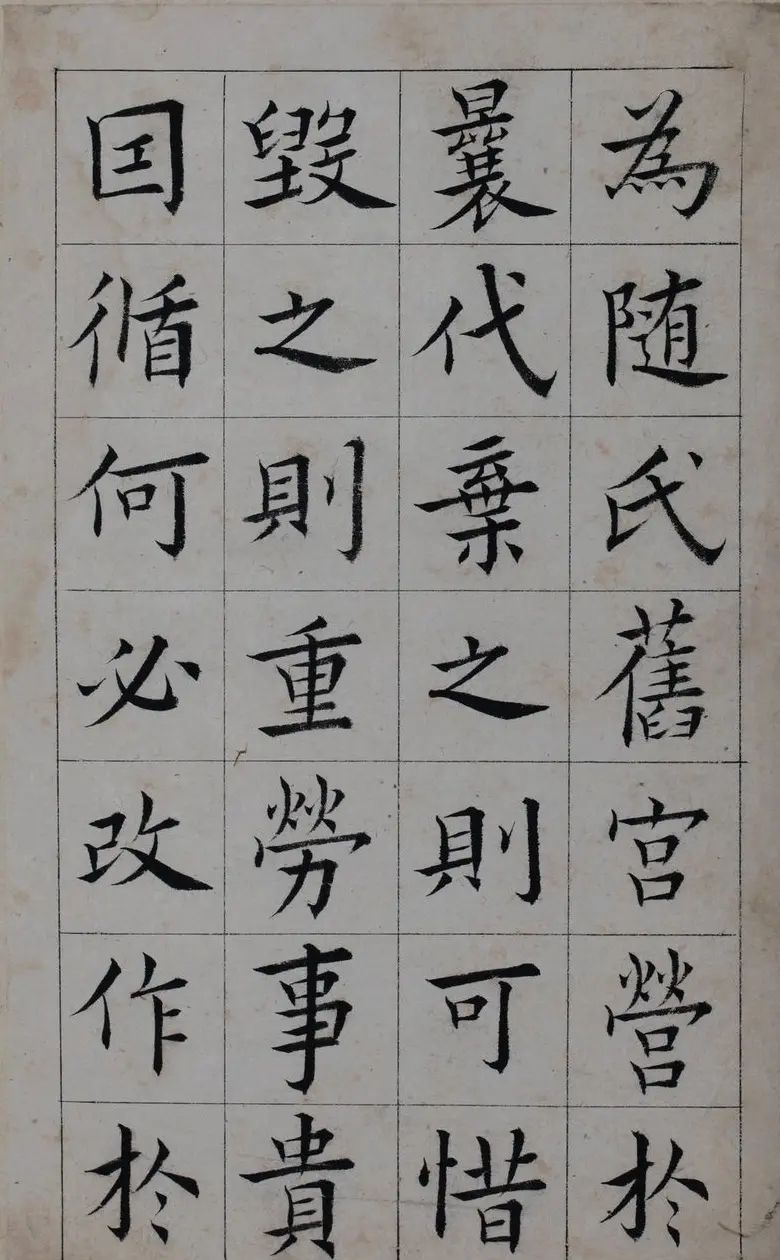 為随氏舊宮營於
曩代棄之則可惜
毀之則重勞事貴
囙循何必改作於